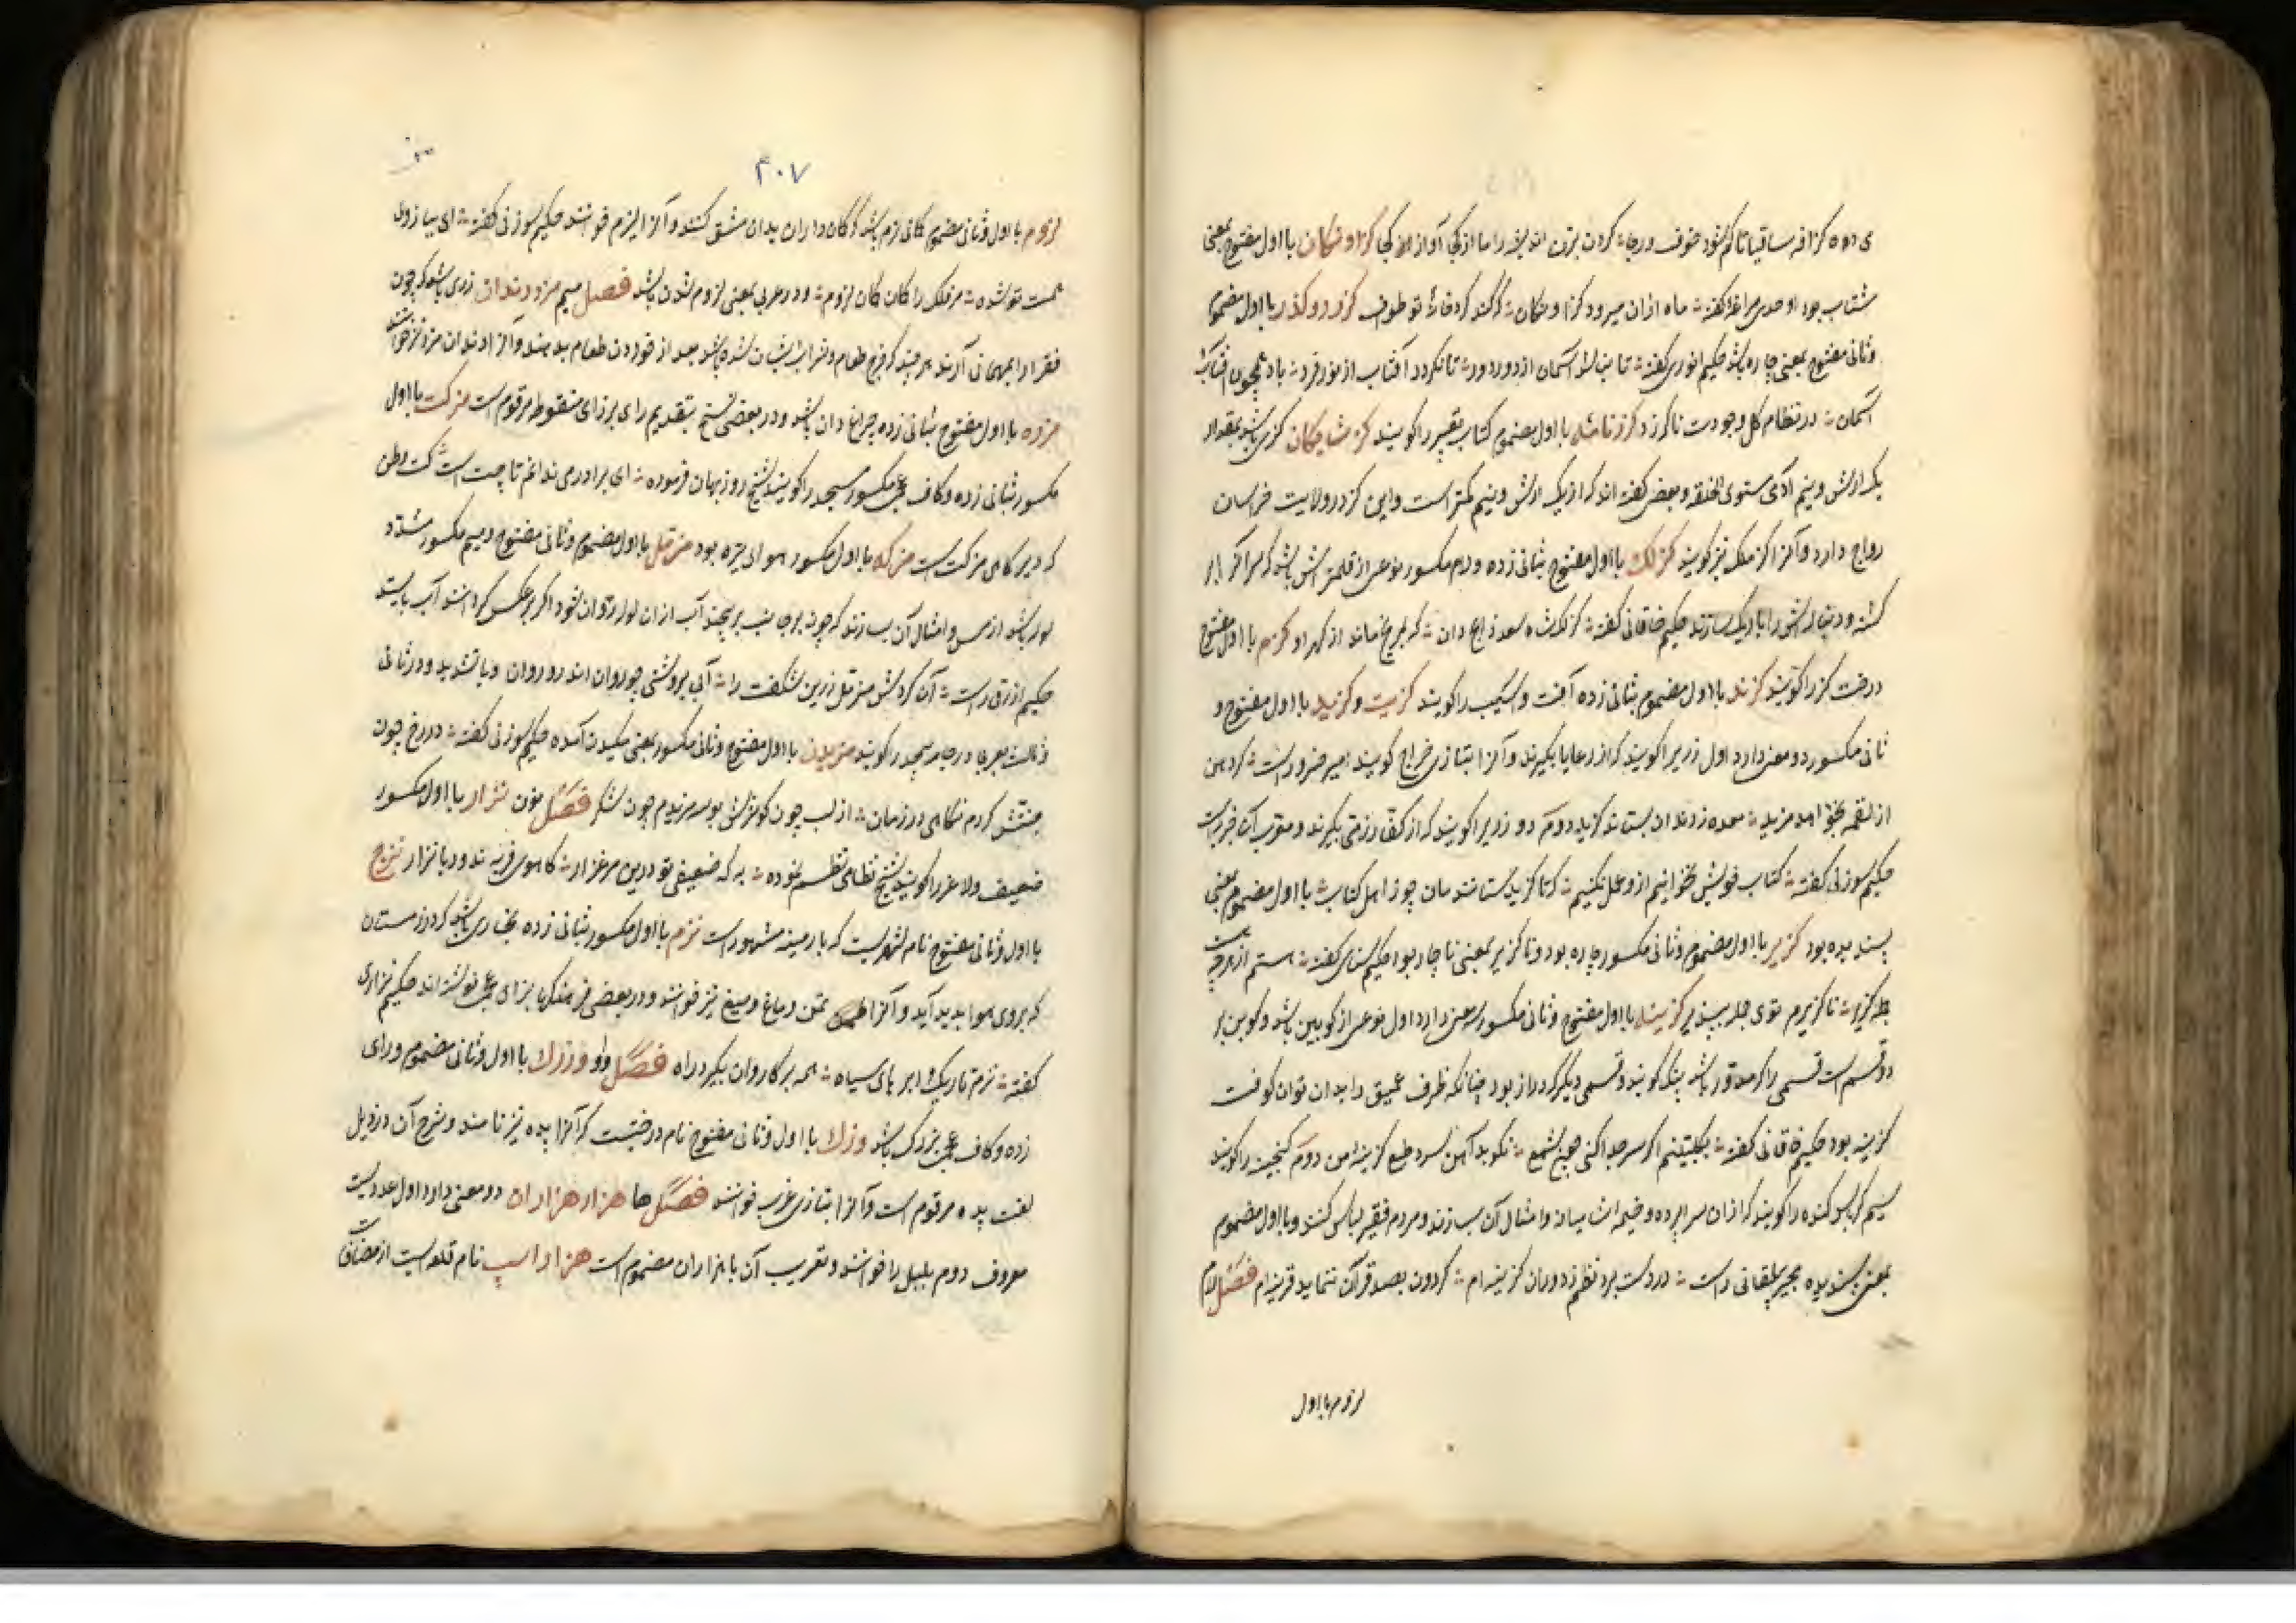 ی دوه کزافه ساقیا تا کم شود خوف و رجا گردن بزن اندیشه را ما از کجا آواز او کجا کزاونکان با اول مفتوح بمعنی
شتاب بود اوحدی مراغه گفته ماه ازان میرود کزاونکان که کند کرد خانهٔ تو طوف کزر و کذر با اول مضموم
وثانی مفتوح بمعنی چاره باشد حکیم انوری گفته تا نباشد آسمان از دور دور تا نکردد آفتاب از نور فرد باد همچون آفتاب
آسمان در نظام کل وجودت ناکزرد کزرنامه با اول مضموم کتاب تعبیر را کویند کز شایکان کزی باشد بمقدار
یک ارش و نیم آدمی مستوی الخلقه و بعضی گفته اند که از یک ارش و نیم کمتر است و این کز در ولایت خراسان
رواج دارد و آنرا کز ملک نیز کویند کزلک با اول مفتوح بثانی زده و لام مکسور نوعی از قلمتراش باشد که سر آن کج
کشته و دنباله اش را باریک سازند حکیم خاقانی گفته کزلک شاه سعد ذابح دان که بمریخ ماند از گهر او کزم با اول مفتوح
درخت کز را کویند کزند با اول مفتوح بثانی زده آفت و آسیب را کویند کزیت و کزید با اول مفتوح و
ثانی مکسور دو معنی دارد اول زریرا کویند که از رعایا بگیرند و آنرا بتازی خراج کویند امیر خسرو راست
از لقمه بخواهد مزید معده ز دندان بستاند کزید دوم دو زریرا کویند که از کفار ذمی بگیرند و معرب آن جزیه است
حکیم سوزنی گفته کتاب خویش نخوانیم ازو عمل نکنیم که تا کزید ستانند مان چو ز اهل کتاب با اول مضموم بمعنی
پسندیده بود کزیر با اول مضموم وثانی مکسور چاره بود و ناکزیر بمعنی ناچار بود حکیم سنائی گفته هستم از هرچه هست
جمله کزیر ناکزیرم توی جمله پذیر کزینه با اول مفتوح وثانی مکسور سه معنی دارد اول نوعی از کوبین باشد و کوبین بر
دو قسم است قسمی را که مدور باشد پتک کویند و قسمی دیگر که دراز بود چنانکه ظرف عمیق را بدان توان کوفت
کزینه بود حکیم خاقانی گفته بکلبتینم اگر سر جدا کنی چون شمع نکوبد آهن سرد طمع کزینهٔ من دوم کنجینه را کویند
سیم کرپاس کنده را کویند که ازان سراپرده و خیمه انبان و امثال آن سازند و مردم فقیر لباس کنند و با اول مضموم
بمعنی پسندیده مجیر بیلقانی راست در دست برد نظم ز دوران کزینه ام کردون بصد قران ننماید قرینه ام فصل لام
لزوم با اول
۴۰۷
لزوم با اول وثانی مضموم کمانی نرم باشد که کمانداران بدان مشق کنند و آنرا لیزم خوانند حکیم سوزنی گفته ای بازوی
همت تو شده مر فلک را کمان کمان لزوم و در عربی بمعنی لازم شدن باشد فصل میم مزد دندان زری باشد که چون
فقرا را بمهمانی آرند هر چند که خرج طعام و شراب ایشان شده باشد بعد از خوردن طعام بدهند و آنرا دندان مزد نیز خوانند
مزده با اول مفتوح بثانی زده چراغدان باشد و در بعضی نسخ بتقدیم رای بر زای منقوطه مرقوم است مزکت با اول
مکسور بثانی زده و کاف عجمی مکسور مسجد را کویند شیخ روزبهان فرموده ای برادر می ندانم تا چت است کت وطن
که دیر گاهی مزکت است مزکه با اول مکسور هوای تیره بود مزمل با اول مضموم وثانی مفتوح و میم مکسور مشدد
لوله باشد از مس و امثال آن بسازند که چون بر جانب بر پیچند آب ازان لوله روان شود و اگر بر عکس گردانند آب بایستد
حکیم ازرقی راست آن گردش مزمل زرین شکفت را آبی بروشنی چو روان اندرو روان و با تشدید و در ثانی
ثالث بعربی در جامه پیچیده را کویند مزیدن با اول مفتوح وثانی مکسور بمعنی مکیدن آمده حکیم سوزنی گفته در رخ چون
جنتش کردم نگاهی در زمان از لب چون کوثرش بوسه مزیدم چون شکر فصل نون نزار با اول مکسور
ضعیف و لاغر را کویند شیخ نظامی نظم نموده به که ضعیفی تو درین مرغزار کاهوی فربه ندود با نزار نزوح
با اول وثانی مفتوح نام شهریست که بارمینه مشهور است نزم با اول مکسور بثانی زده بخاری باشد که در زمستان
که بروی هوا پدید آید و آنرا تمن و ماغ و میغ نیز خوانند و در بعضی فرهنگها بزای عجمی نوشته اند حکیم نزاری
گفته نزم تاریک و ابر های سیاه همه بر کاروان بگیرد راه فصل واو وزرک با اول وثانی مضموم و رای
زده و کاف عجمی بزرگ باشد وزک با اول وثانی مفتوح نام درختیست که آنرا پده نیز نامند و شرح آن در ذیل
لغت پده مرقوم است و آنرا بتازی غرب خوانند فصل ها هزار هزاران دو معنی دارد اول عددیست
معروف دوم بلبل را خوانند و تعریب آن با هزاران مضموم است هزار اسب نام قلعه ایست از مضافات